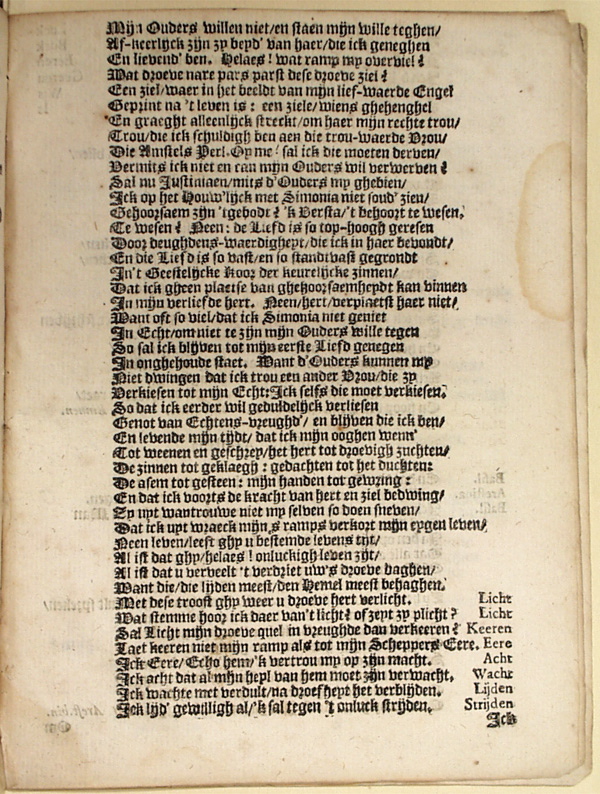 Mijn Ouders willen niet/en staen mijn wille teghen/
Af-keerlijck zijn zy beyd' van haer/die ick geneghen
En lievend' ben. Helaes! wat ramp my overviel?
Wat droeve nare pars parst dese droeve ziel?
Een ziel/waer in het beeldt van mijn lief-waerde Engel
Geprint na 't leven is: een ziele/wiens ghehenghel
En graeght alleenlijck streckt/om haer mijn rechte trou/
Trou/die ick schuldigh ben aen die trou-waerde Vrou/
Die Amstels Perl. Oy me! sal ick die moeten derven/
Vermits ick niet en can mijn Ouders wil verwerven?
Sal nu Justiniaen/mits d'Ouders my ghebien/
Ick op het Houw'lijck met Simonia niet soud' zien/
Gehoorsaem zijn 'tgebodt? 'k Versta/'t behoort te wesen,
Te wesen? Neen: de Liefd is so top-hoogh geresen
Door deughdens-waerdigheyt/die ick in haer bevondt/
En die Liefd is so vast/en so standtvast gegrondt
In't Geestelijcke Koor der keurelijcke zinnen/
Dat ick gheen plaetse van ghehoorsaemheydt kan vinnen
In mijn verliefde hert. Neen/hert/verplaetst haer niet/
Want oft so viel/dat ick Simonia niet geniet
In Echt/om niet te zijn mijn Ouders wille tegen
So sal ick blijven tot mijn eerste Liefd genegen
In onghehoude staet. Want d'Ouders kunnen my
Niet dwingen dat ick trou een ander Vrou/die zy
Verkiesen tot mijn Echt: Ick selfs die moet verkiesen.
So dat ick eerder wil geduldelijck verliesen
Genot van Echtens-vreughd'/ en blijven die ick ben/
En levende mijn tijdt/ dat ick mijn ooghen wenn'
Tot weenen en geschrey/het hert tot droevigh zuchten/
De zinnen tot geklaegh: gedachten tot het duchten:
De asem tot gesteen: mijn handen tot gewring:
En dat ick voorts de kracht van hert en ziel bedwing/
Ey uyt wantrouwe niet my selven so doen sneven/
Dat ick uyt wraeck mijns ramps verkort mijn eygen leven/
Neen leven/leeft ghy u bestemde levens tijt/
Al ist dat ghy/helaes! onluckigh leven zijt/
Al ist dat u verveelt 't verdriet uw's droeve daghen/
Want die/die lijden meest/den Hemel meest behaghen.
Met dese troost ghy weer u droeve hert verlicht. Licht
Wat stemme hoor ick daer van't licht? of zeyt zy plicht? Licht
Sal Licht mijn droeve quel in vreughde dan verkeeren? Keeren
Laet keeren niet mijn ramp als tot mijn Scheppers Eere. Eere
Ick Eere/Echo hem/'k vertrou my op zijn macht. Acht
Ick acht dat al mijn heyl van hem moet zijn verwacht. Wacht
Ick wachte met verdult/na droefheyt het verblijden. Lijden
Ick lijd' gewilligh al/'k sal tegen 't onluck strijden. Strijden
Ick